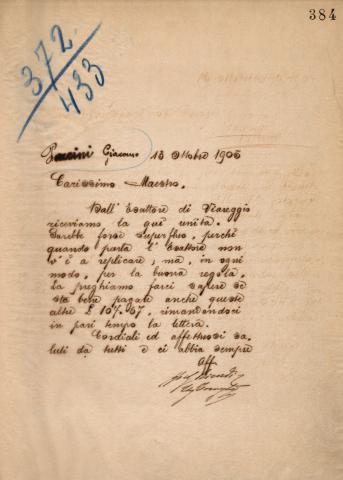 384
372
433
Puccini Giacomo 18 Ottobre 1905
Carissimo Maestro.
Dall' Esattore di Viareggio
riceviamo la qui unita.
Sarebbe forse superfluo, perchè
quando parla l' Esattore non
v' è a replicare, ma, in ogni
modo, per la buona regola,
La preghiamo farci sapere se
sta bene pagare anche queste
altre £ 107.67, rimandandoci
in pari tempo la lettera.
Cordiali ed affettuosi sa-
luti da tutti e ci abbia sempre
Aff